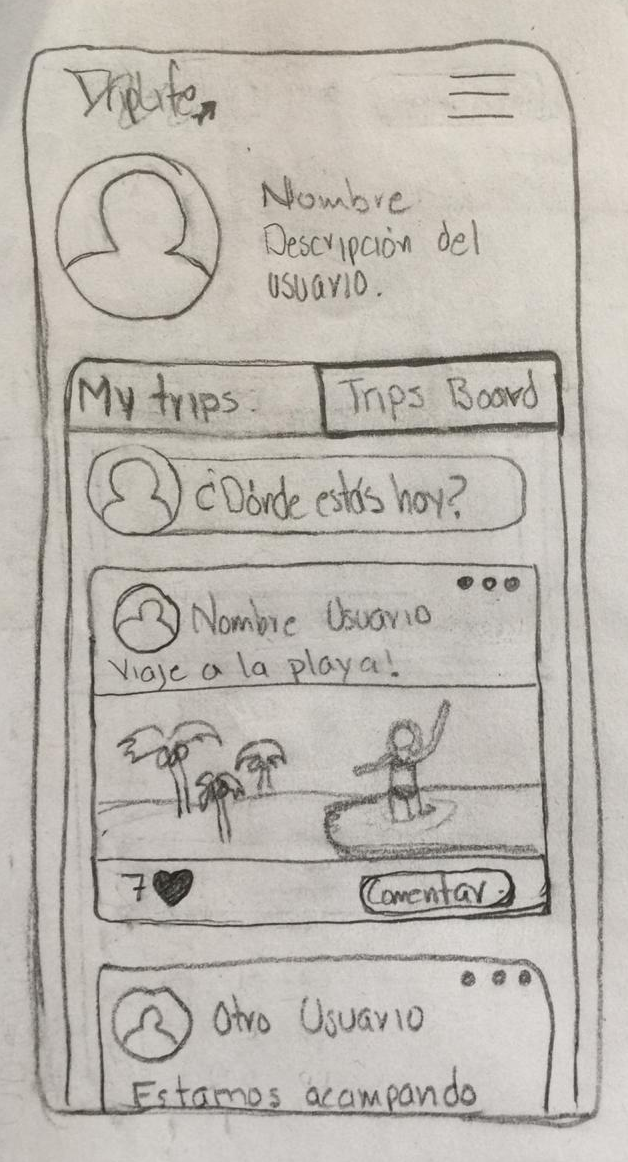 TripLife
Nombre
Descripción del
usuario.
My trips.
Trips Board
¿Dónde estás hoy?
Nombre Usuario
Viaje a la playa!
7
Comentar.
Otro Usuario
Estamos acampando